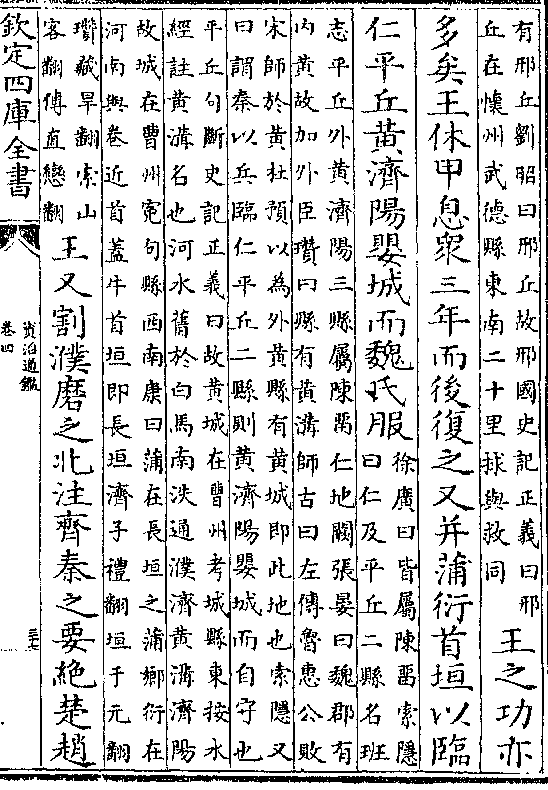 有邢丘劉昭曰邢丘故邢國史記正義曰邢
丘在懷州武德縣東南二十里捄與救同
王之功亦
多矣王休甲息衆三年而後復之又并蒲衍首垣以臨
仁平丘黃濟陽嬰城而魏氏服
徐廣曰皆屬陳畱索隱
曰仁及平丘二縣名班
志平丘外黃濟陽三縣屬陳畱仁地闕張晏曰魏郡有
内黃故加外臣瓚曰縣有黃溝師古曰左傳魯惠公敗
宋師於黃杜預以為外黃縣有黃城即此地也索隱又
曰謂秦以兵臨仁平丘二縣則黃濟陽嬰城而自守也
平丘句斷史記正義曰故黃城在曹州考城縣東按水
經註黃溝名也河水舊於白馬南泆通濮濟黃溝濟陽
故城在曹州寃句縣西南康曰蒲在長垣之蒲鄉衍在
河南與卷近首蓋牛首垣即長垣濟子禮翻垣于元翻
瓚藏旱翻索山
客翻傳直戀翻
王又割濮磨之北注齊秦之要絶楚趙
欽定四庫全書
資治通鑑
卷四
三十七